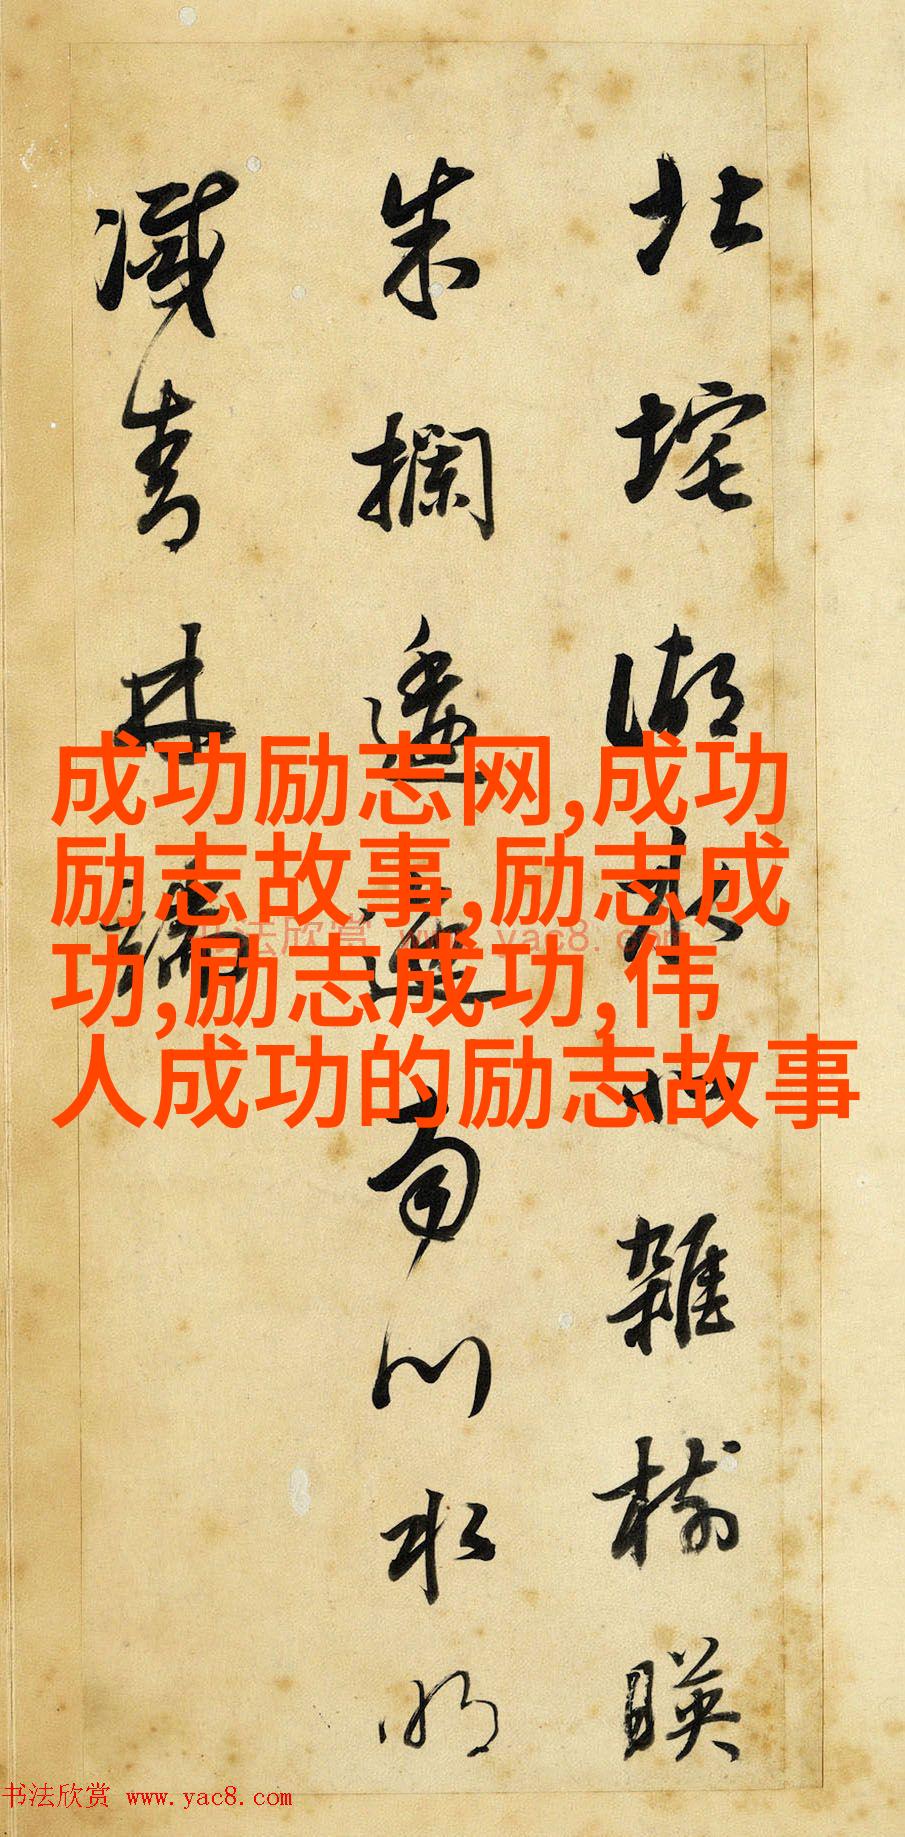 北垞湖水北雜樹暎
朱欄逶迤南川水明
滅青林端
成功励志网,成功
励志故事,励志成
功,励志成功,伟
人成功的励志故事
书法欣赏 www.yac8.com
书法欣赏 www.yac8.com